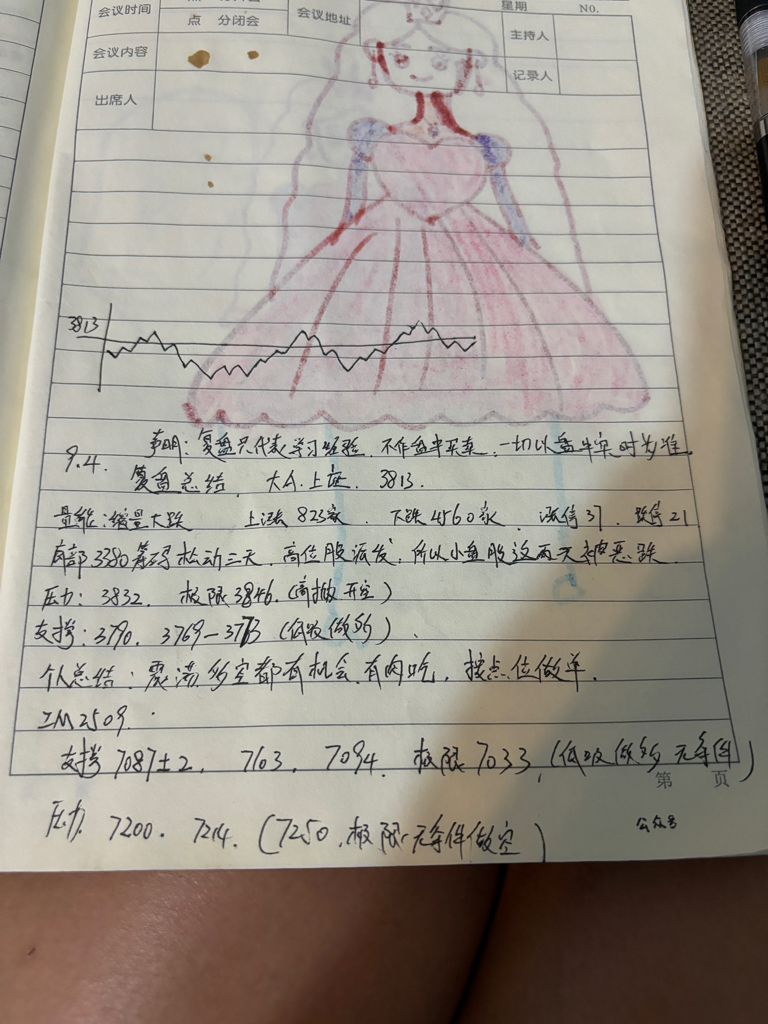 会议时间
点 分闭会
会议地址
星期
NO.
主持人
会议内容
记录人
出席人
3813
声明：复盘只代表学习经验，不作盘中买卖，一切以盘中实时为准。
9.4.
复盘总结 大A.上证 3813.
量能：缩量大跌 上涨823家 . 下跌4560家 涨停37 . 跌停21
3380筹码松动三天，高位股派发，所以小盘股这两天被恶跌
压力：3832. 极限3846.(高抛开空)
支撑：3790. 3769—3773 (低吸做多) .
个人总结：震荡多空都有机会.有肉吃，按点位做单.
IM2509.
支撑7087±2. 7163. 7094. 极限7033.(低吸做多 无条件)
第 页
压力. 7200. 7214. (7250.极限无条件做空)
公众号